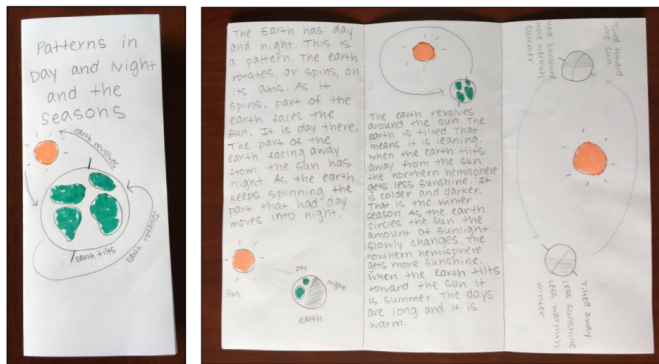 Patterns in
Day and Night
and the
Seasons
earth revolves
earth tilts
earth rotates
The Earth has day
and night. This is
a pattern. The earth
rotates, or spins, on
its axis. As it
spins, part of the
earth faces the
sun. It is day there.
The part of the
earth facing away
from the sun has
night. As the earth
keeps spinning the
part that had day
moves into night.
Sun
Day
night
Earth
The earth revolves
around the sun. The
earth is tilted. That
means it is leaning.
when the earth tilts
away from the sun
the northern hemisphere
gets less sunshine. It
is colder and darker.
That is the winter
season. As the earth
circles the sun the
amount of sunlight
slowly changes. The
northern hemisphere
gets more sunshine.
when the earth tilts
toward the sun it
is summer. The days
are long and it is
warm.
Tilted toward
the sun
more sunshine
more warmth
summer
Tilted away
Less sunshine
Less warmth
winter